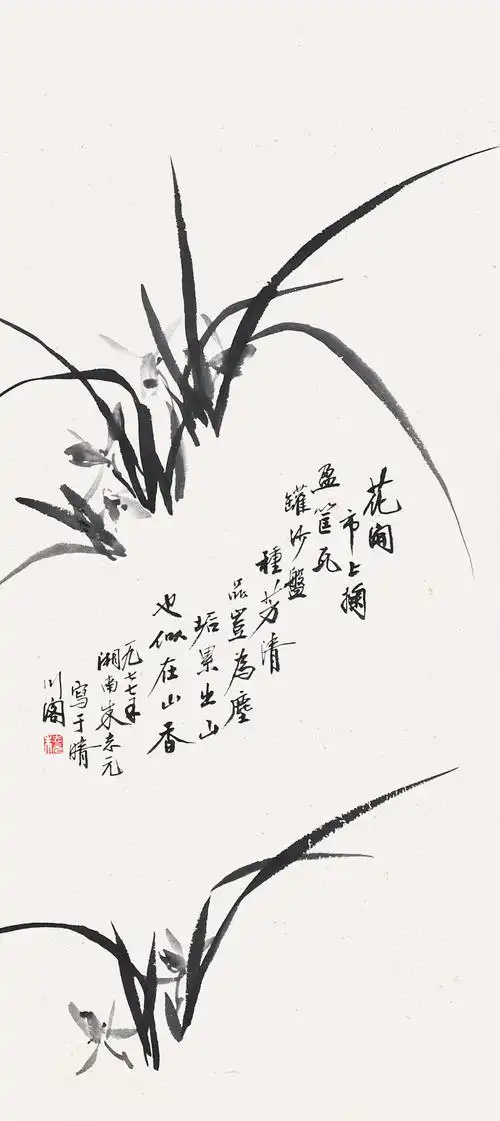 花開
市上掬
盈筐瓦
罐沙盤
種芳清
品豈為塵
垢累出山
也似在山香
一九七七年
湘南元
寫于晴
川閣